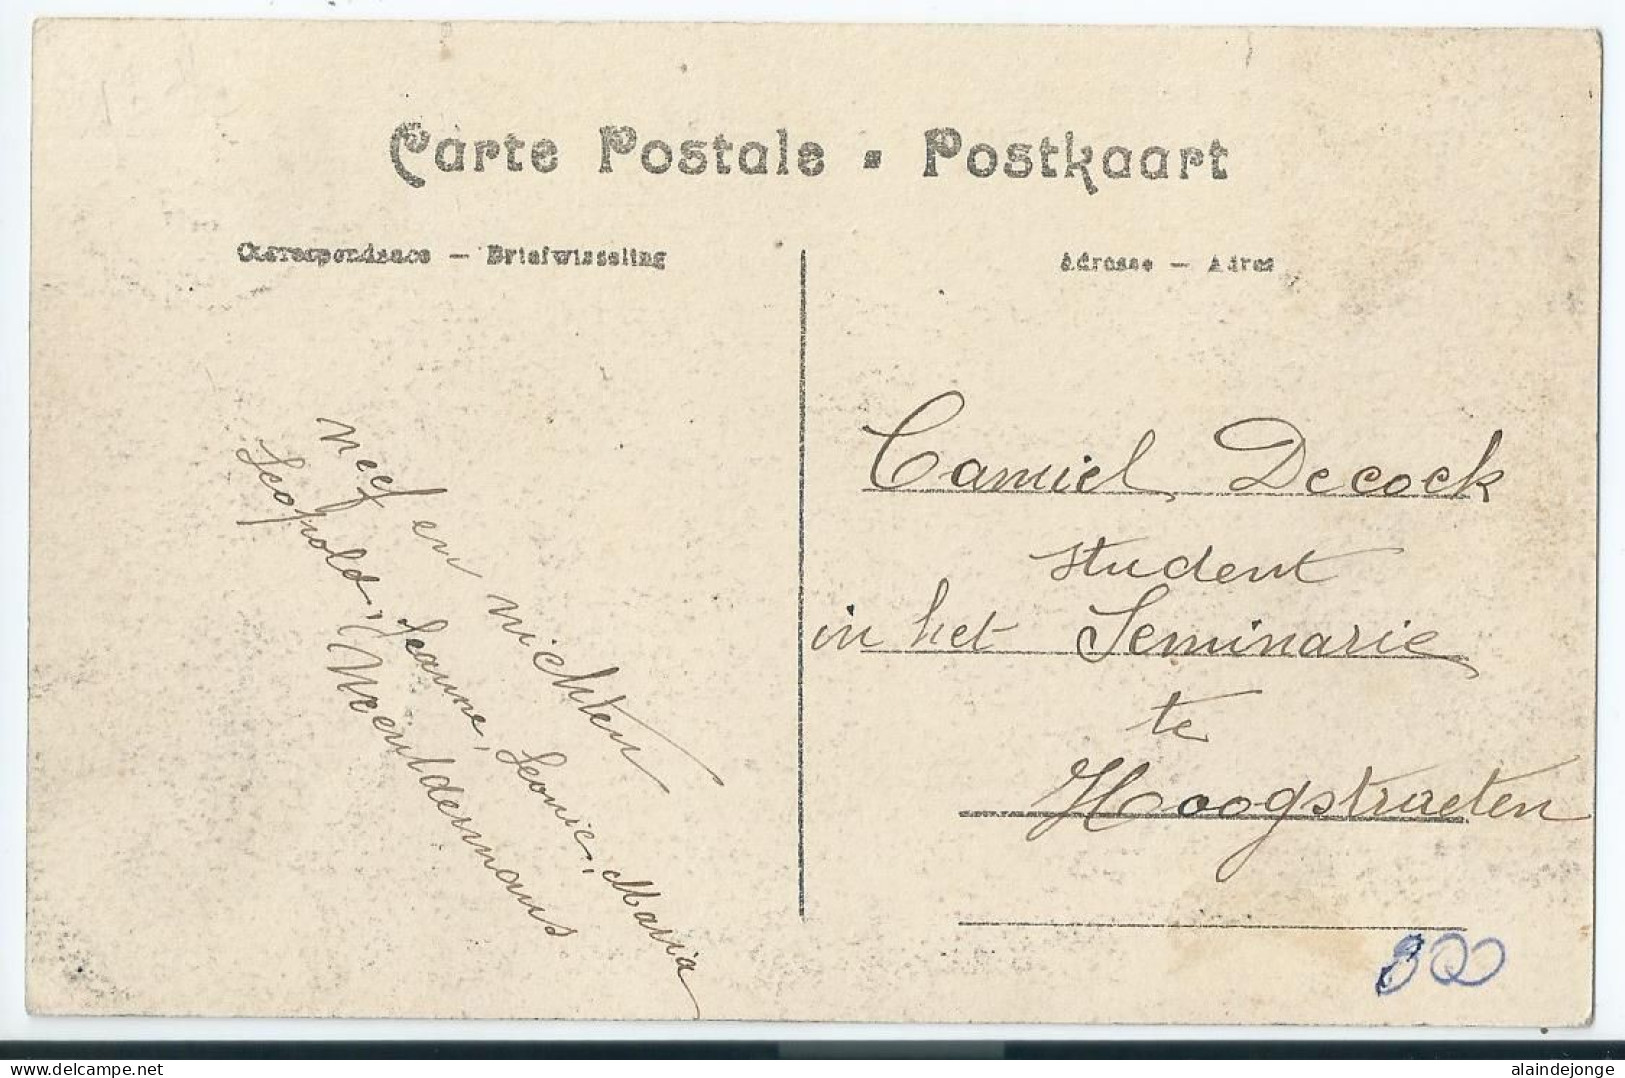 Carte Postale • Postkaart
Correspondance — Briefwisseling
Adresse — Adres
neef en nichten
Leopold, Jeanne, Leonie, Maria
Camiel Decock
student
in het Seminarie
te
Hoogstraeten
800
alaindejonge
www.delcampe.net